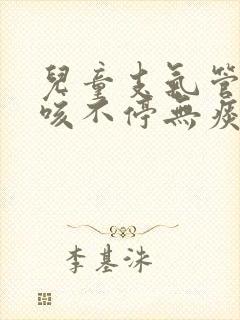 兒童支氣管
咳不停無痰
李基洙